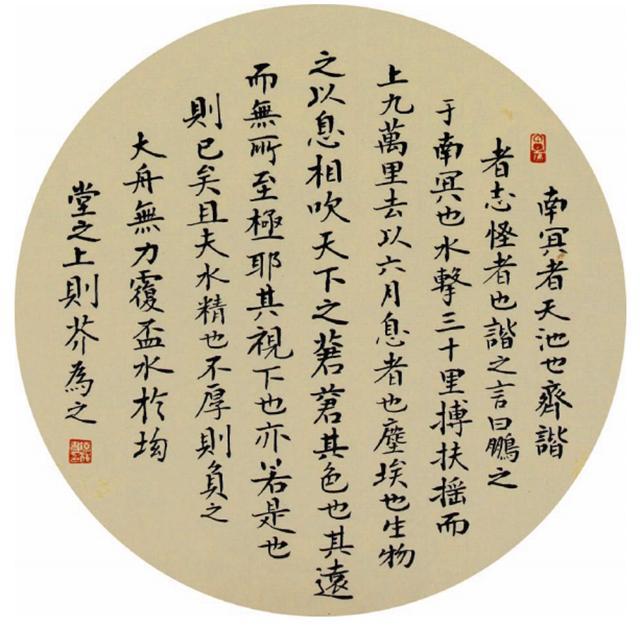 南冥者天池也齊諧
者志怪者也諧之言曰鵬之
于南冥也水擊三十里搏扶摇而
上九萬里去以六月息者也塵埃也生物
之以息相吹天下之蒼蒼其色也其遠
而無所至極耶其視下也亦若是也
則已矣且夫水精也不厚則負之
大舟無力覆盃水於坳
堂之上則芥為之